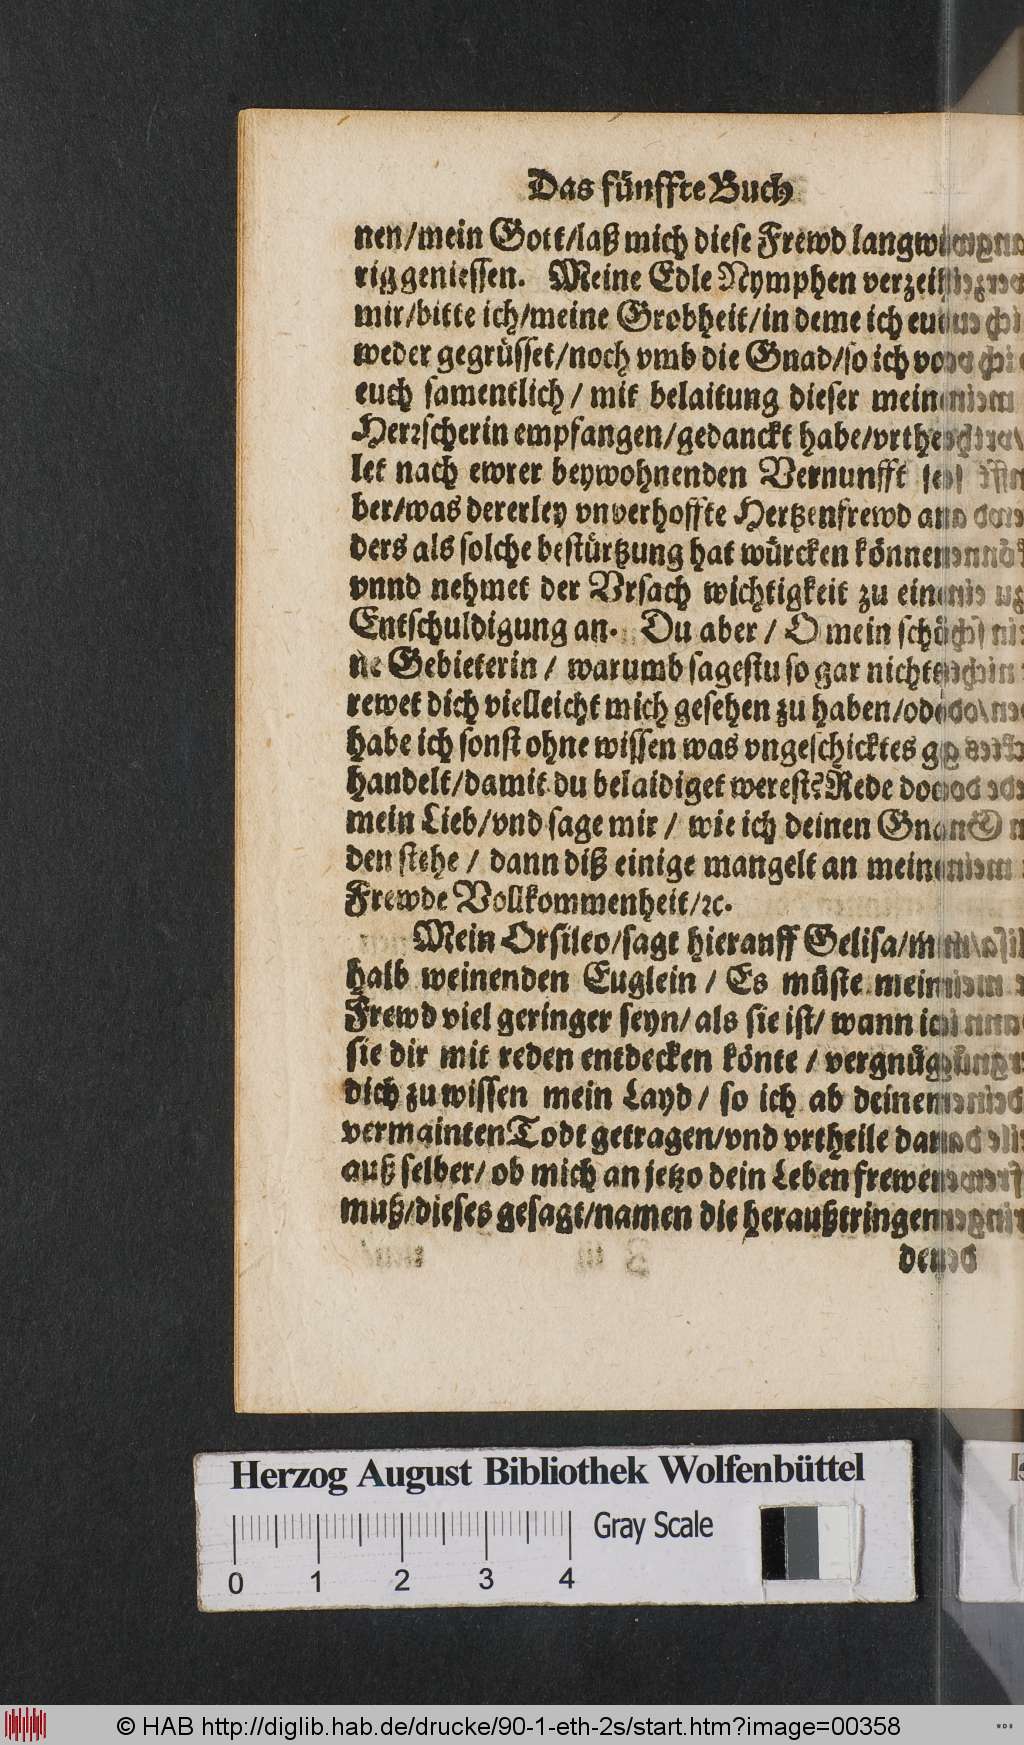 Das fünffte Buch
nen/mein Gott/laß mich diese Frewd langwü-
rig geniessen. Meine Edle Nymphen verzeihet
mir/bitte ich/meine Grobheit/in deme ich euch
weder gegrüsset/noch vmb die Gnad/so ich von
euch samentlich / mit belaitung dieser meinen
Herrscherin empfangen/gedanckt habe/vrthei-
let nach ewrer beywohnenden Vernunfft sel-
ber/was dererley vnverhoffte Hertzenfrewd an-
ders als solche bestürtzung hat würcken können
vnnd nehmet der Vrsach wichtigkeit zu einer
Entschuldigung an. Du aber / O mein schö-
ne Gebieterin / warumb sagestu so gar nichts
rewet dich vielleicht mich gesehen zu haben/oder
habe ich sonst ohne wissen was vngeschicktes ge-
handelt/damit du belaidiget werest? Rede doch
mein Lieb/vnd sage mir / wie ich deinen Gna-
den stehe / dann diß einige mangelt an meiner
Frewde Vollkommenheit/ꝛc.
Mein Orsileo/sagt hierauff Gelisa/mit
halb weinenden Euglein / Es müste mein
Frewd viel geringer seyn/ als sie ist/ wann ich
sie dir mit reden entdecken könte / vergnüge
dich zu wissen mein Layd / so ich ab deinem
vermainten Todt getragen/vnd vrtheile dar-
auß selber/ ob mich an jetzo dein Leben frewen
muß/dieses gesagt/namen die heraußtringen-
den
Herzog August Bibliothek Wolfenbüttel
0 1 2 3 4
Gray Scale
© HAB http://diglib.hab.de/drucke/90-1-eth-2s/start.htm?image=00358